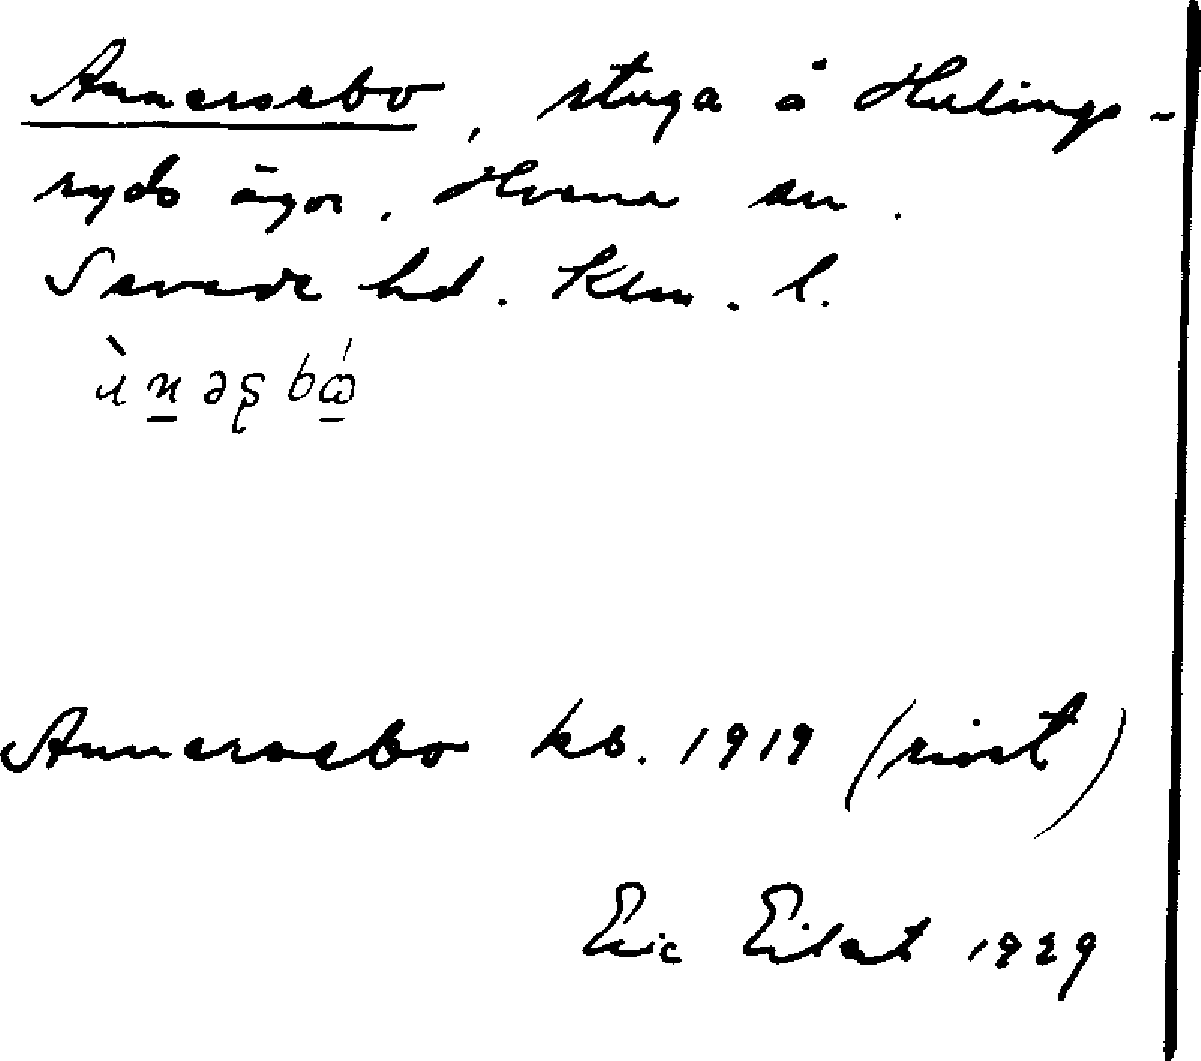 Annersebo, stuga å Hulings-
ryds ägor, Hvena sn.
Sevede hd. Klm. l.
Annersebo kb. 1919
Eric 1929